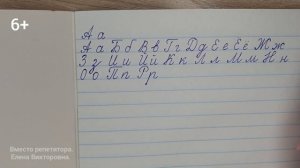 6+
А а
А а Б б В в Г г Д д Е е Ё ё Ж ж
З з И и Й й К к Л л М м Н н
О о П п Р р
Вместо репетитора.
Елена Викторовна.